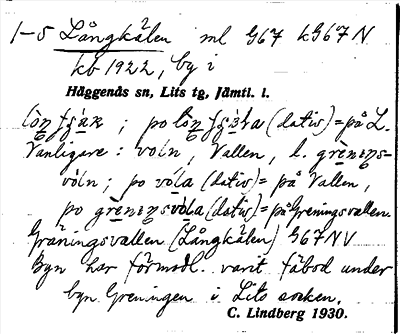 1-5 Långkälen ml G67 k G67N
kb 1922, by i
Häggenås sn, Lits tg, Jämtl. l.
; po (dativ) = på L.
Vanligare: voln, Vallen, l.
vòln; po vóla (dativ) = på Vallen,
po (dativ) = på Greningsvallen.
Gräningsvallen (Långkälen) G67NV
Byn har förmodl. varit fäbod under
byn Greningen i Lits socken.
C. Lindberg 1930.